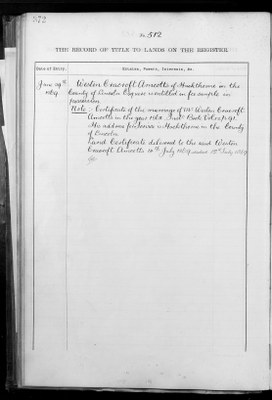 372
No. 512
THE RECORD OF TITLE TO LANDS ON THE REGISTER.
Date of Entry.
Estates, Powers, Interests, &c.
June 29th
1869
Weston Cracroft Amcotts of Hackthorne in the
County of Lincoln Esquire is entitled in fee simple in
possession
Note: Certificate of the marriage of Mr Weston Cracroft
Amcotts in the year
His address for service is Hackthorne in the County
of Lincoln
Land Certificate delivered to the said Weston
Cracroft Amcotts 10th July 1869